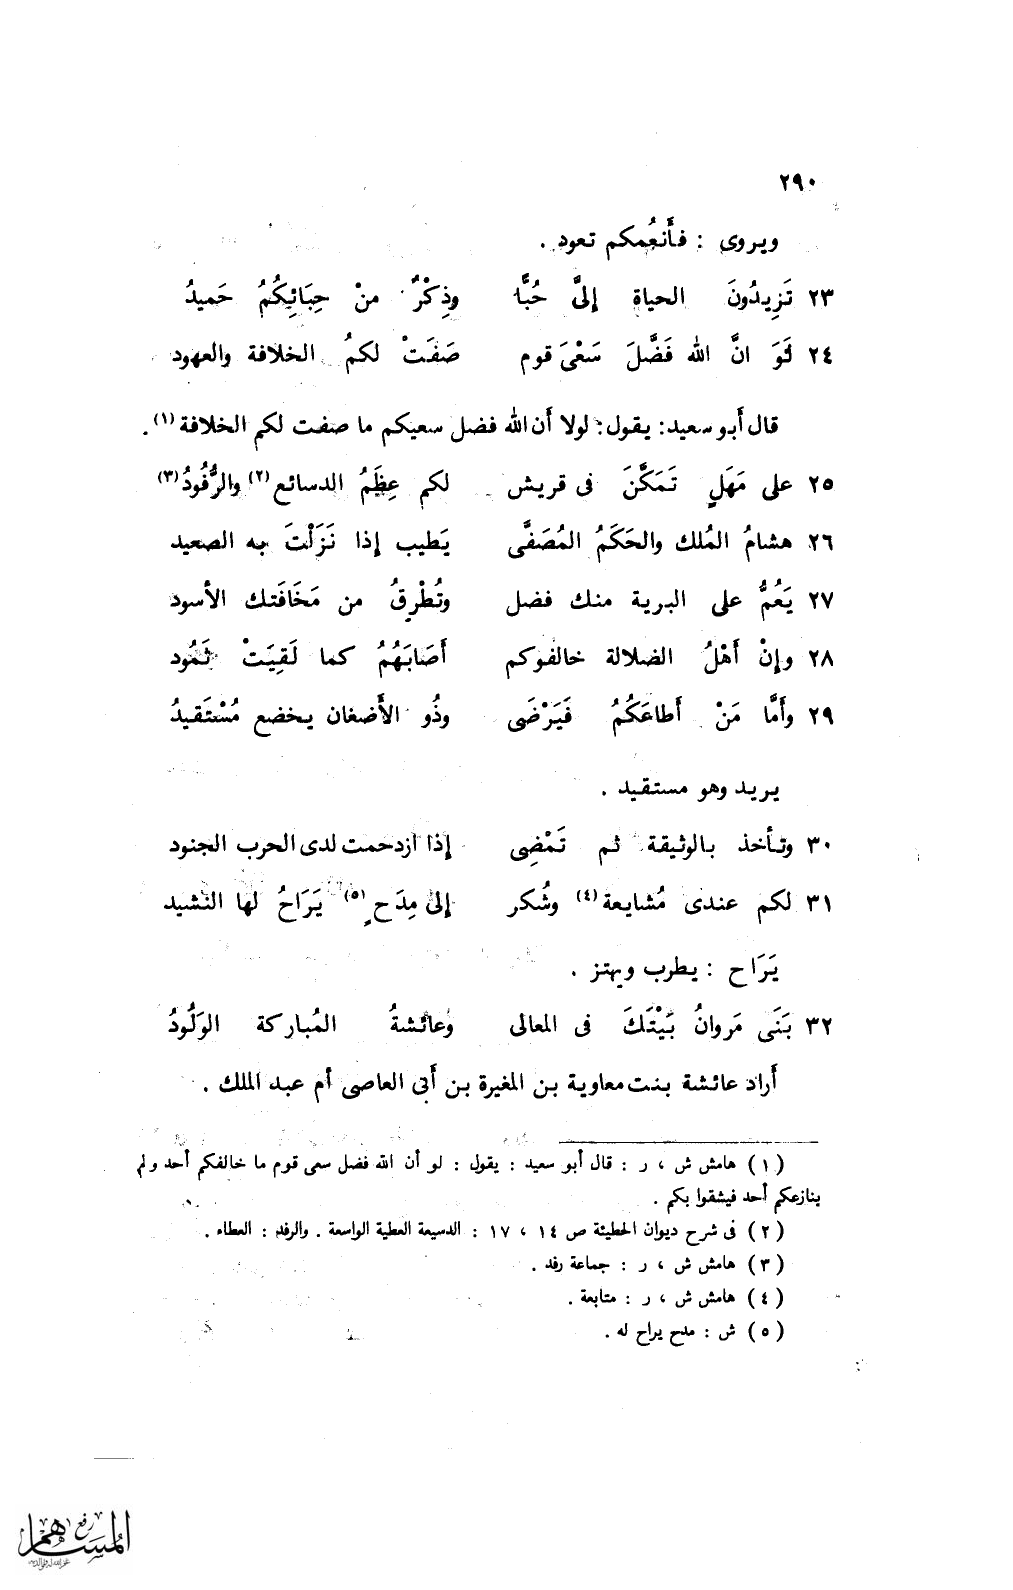 ٢٩٠
ويروى : فأَنعُمكم تعود .
٢٣ تَزِيدُونَ الحياة إلىَّ حُبًّا وذِكْرٌ منْ حِبَائِكُمُ حَميدُ
٢٤ لَوَ انَّ الله فَضَّلَ سَعْىَ قوم صَفَتْ لكمُ الخلافة والعهود
قال أبو سعيد: يقول: لولا أن الله فضل سعيكم ما صفت لكم الخلافة (١).
٢٥ على مَهَلٍ تَمَكَّنَ فى قريش لكم عِظَمُ الدسائع (٢) والرُّفُودُ (٣)
٢٦ هشامُ المُلك والحَكَمُ المُصَفَّى يَطيب إذا نَزَلْتَ به الصعيد
٢٧ يَعُمُّ على البرية منك فضل وتُطْرِقُ من مَخَافَتك الأسود
٢٨ وإنْ أَهْلُ الضلالة خالفوكم أَصَابَهُمُ كما لَقِيَتْ ثَمُود
٢٩ وأَمَّا مَنْ أَطاعَكُمُ فَيَرْضَى وذُو الأَضغان يخضع مُسْتَقيدُ
يريد وهو مستقيد .
٣٠ وتأخذ بالوثيقة ثم تَمْضِى إذا ازدحمت لدى الحرب الجنود
٣١ لكم عندى مُشايعة (٤) وشُكر إلى مِدَحٍ (٥) يَرَاحُ لها النشيد
يَرَاح : يطرب ويهتز .
٣٢ بَنَى مَروانُ بَيْتَكَ فى المعالى وعائشةُ المُباركة الوَلُودُ
أَراد عائشة بنت معاوية بن المغيرة بن أَبى العاصى أم عبد الملك .
(١) هامش ش ، ر : قال أبو سعيد : يقول : لو أن الله فضل سعى قوم ما خالفكم أحد ولم
ينازعكم أحد فيشقوا بكم .
(٢) فى شرح ديوان الحطيئة ص ١٤ ، ١٧ : الدسيعة العطية الواسعة . والرفد : العطاء .
(٣) هامش ش ، ر : جماعة رفد .
(٤) هامش ش ، ر : متابعة .
(٥) ش : مدح يراح له .
رفع
المساهم